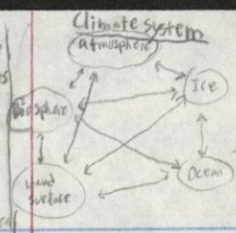 Climate system
Atmosphere
Ice
Biosphere
Land
surface
Ocean